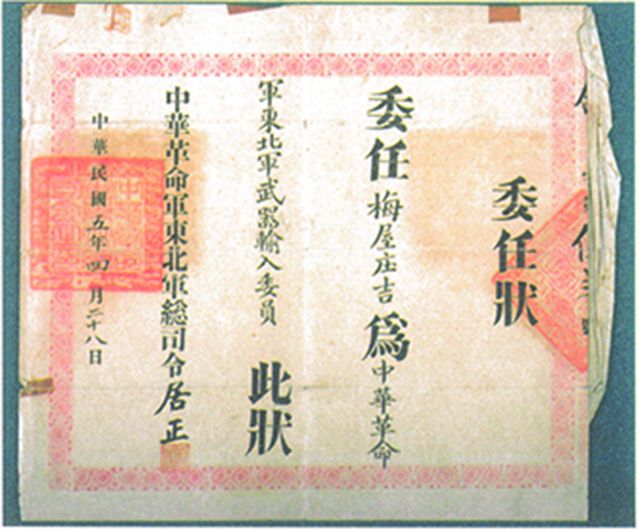 委任狀
委任梅屋庄吉爲中華革命
軍東北軍武器輸入委員 此狀
中華革命軍東北軍總司令居正
中華民國五年四月二十八日